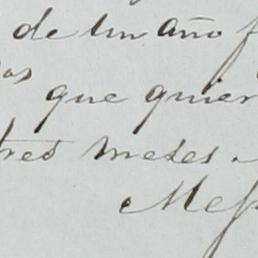 de un año f
os que quier
tres meses
Mef